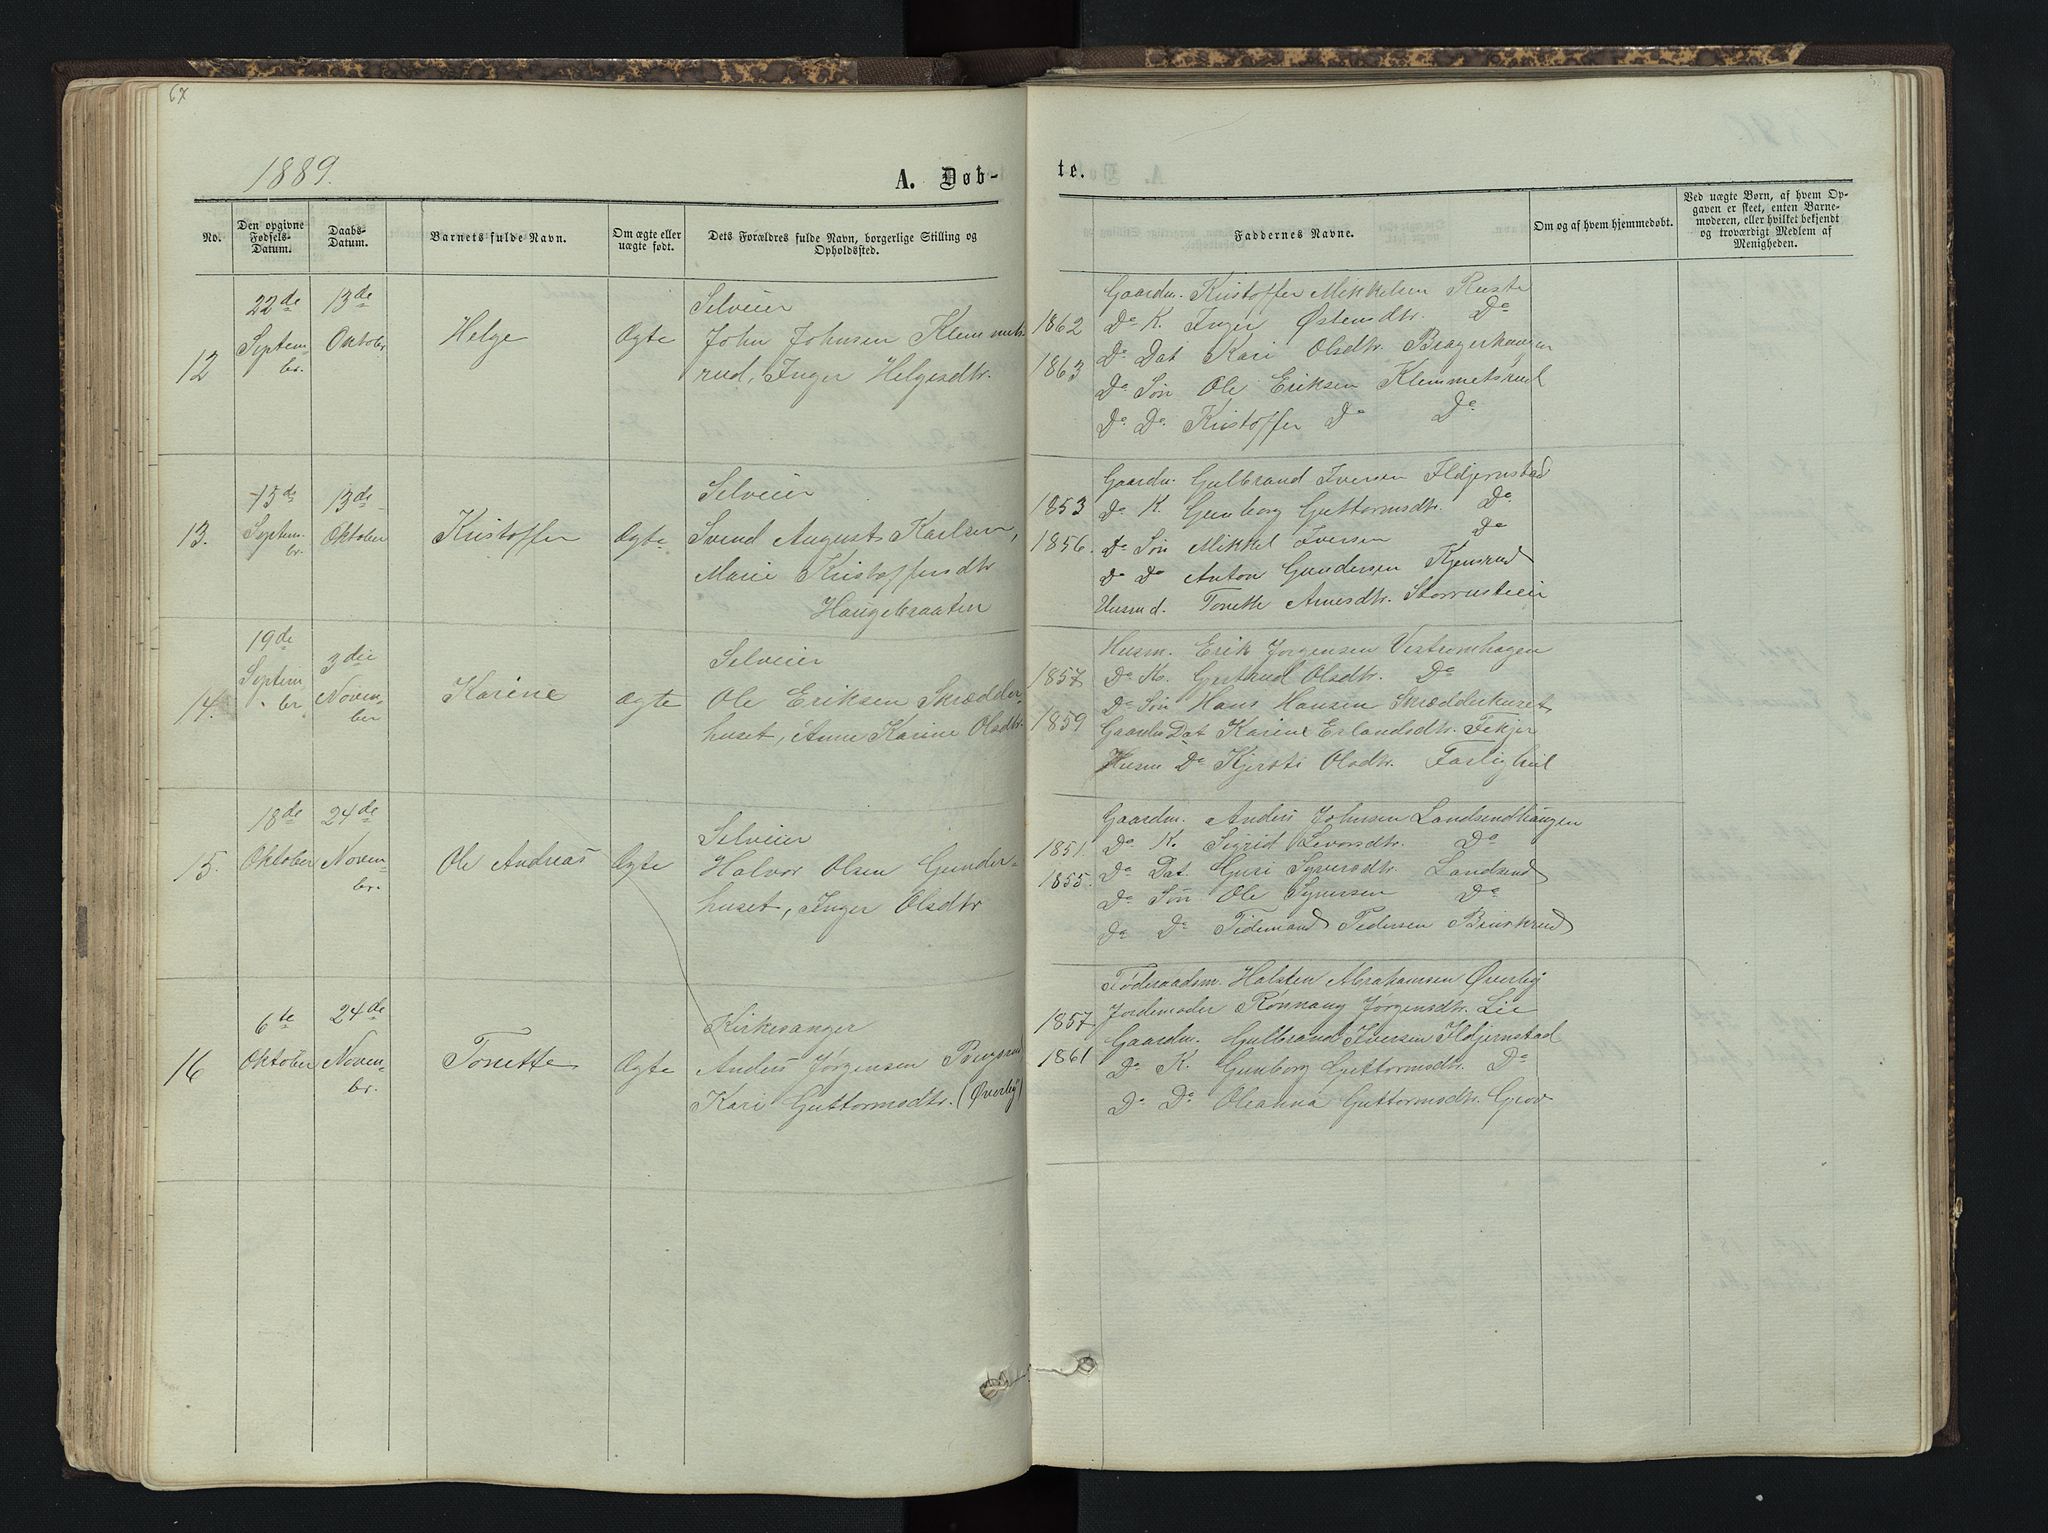 67
1889.
A. Døb-
No.
Den opgivne Fødsels-Datum.
Daabs-Datum.
Barnets fulde Navn.
Om ægte eller uægte født.
Dets Forældres fulde Navn, borgerlige Stilling og Opholdssted.
12
22de
Septem-
br.
13de
Oktober
Helge
Ægte
Selveier
John Johnsen Klemmets-
rud, Inger Helgesdtr.
13.
15de
Septem-
br.
13de
Oktober
Kristoffer
Ægte
Selveier
Svend August Karlsen,
Marie Kristoffersdtr
Haugebraaten
14.
19de
Septem-
br
3die
Novem-
ber
Karine
Ægte
Selveier
Ole Eriksen Skrædder-
huset, Anne Karine Olsdtr.
15.
18de
Oktober
24de
Novem-
br.
Ole Andreas
Ægte
Selveier
Halvor Olsen Gunder-
huset, Inger Olsdtr
16
6te
Oktober
24de
Novem-
br.
Tonette
Ægte
Kirkesanger
Anders Jørgensen
Kari Guttormsdtr. (Øverby)
te.
Faddernes Navne.
Om og af hvem hjemmedøbt.
Ved uægte Børn, af hvem Op-
gaven er skeet, enten Barne-
moderen, eller hvilket bekjendt
og troværdigt Medlem af
Menigheden.
Gaardm. Kristoffer Mikkelsen Ruste
1862 Do K. Inger Østensdtr. Do
Do Dat Kari Olsdtr. Bragerhaugen
1863 Do Søn Ole Eriksen Klemmetsrud
Do Do Kristoffer Do Do
Gaardm. Gulbrand Iversen Ildjernstad
1853 Do K. Gunborg Guttormsdtr. Do
1856. Do Søn Mikkel Iversen Do
Do Do Anton Gundersen Kjensrud
Husmd. Tonette Arnesdtr.
Husm. Erik Jørgensen Vestromhagen
1857 Do K. Gjertrud Olsdtr. Do
Do Søn Hans Hansen Skrædderhuset
1859 Gaardm Dat Karine Erlandsdtr. Fekjer
Husm Do Kjersti Olsdtr.
Gaardm. Anders Johnsen Landsendhaugen
1851. Do K. Sigrid Levorsdtr. Do
1855. Do Dat. Guri Syversdtr. Landsend
Do Søn Ole Syversen Do
Do Do Tidemand Pedersen
Føderaadsm. Halsten Abrahamsen Øverby
1857 Jordemoder Rønnaug Jørgensdtr. Lie
Gaardm. Gulbrand Iversen Ildjernstad
1861 Do K. Gunborg Guttormsdtr. Do
Do Do Oleanna Guttormsdtr. Grov